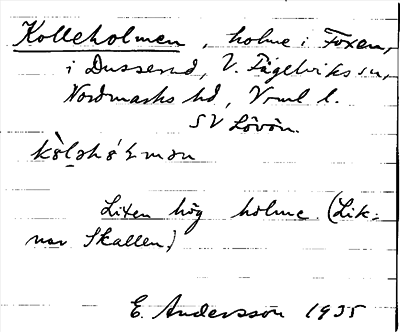 Kolleholmen, holme i Foxen,
i Dusserud, V. Fågelviks sn,
Nordmarks hd, Vrml l.
SV Lövön.
Liten hög holme. (Lik-
nar Skallen)
E. Andersson 1935